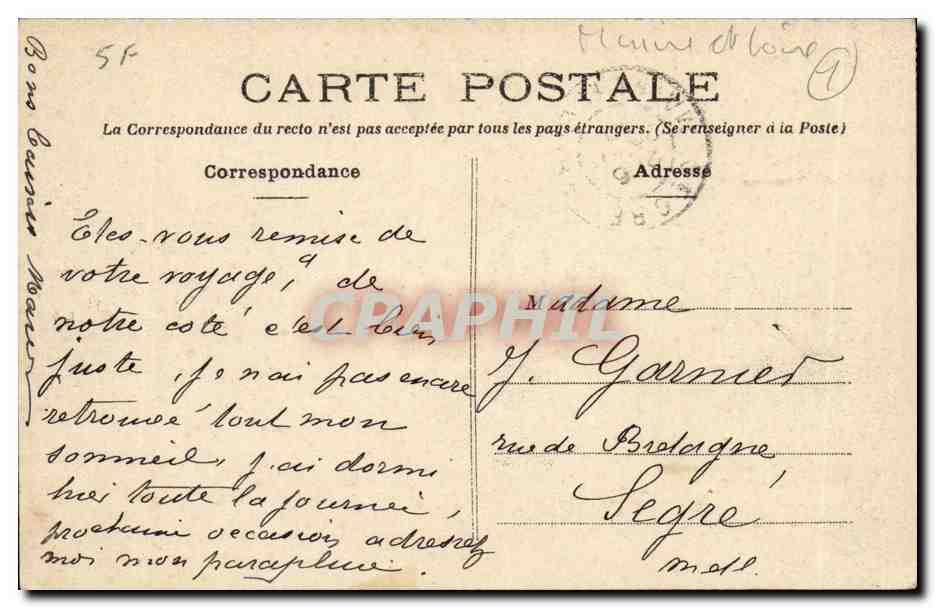 5F
Maine et Loire
1
CARTE POSTALE
La Correspondance du recto n'est pas acceptée par tous les pays étrangers. (Se renseigner à la Poste)
Correspondance
Etes-vous remise de
votre voyage, a de
notre coté c'est bien
juste, je n'ai pas encore
retrouvé tout mon
sommeil, j'ai dormi
hier toute la journeé,
prochaine occasion adressez
moi mon parapluie.
Bons baisers
Adresse
Madame
J. Garnier
rue de Bretagne
Segré
M et L.
CPAPHIL